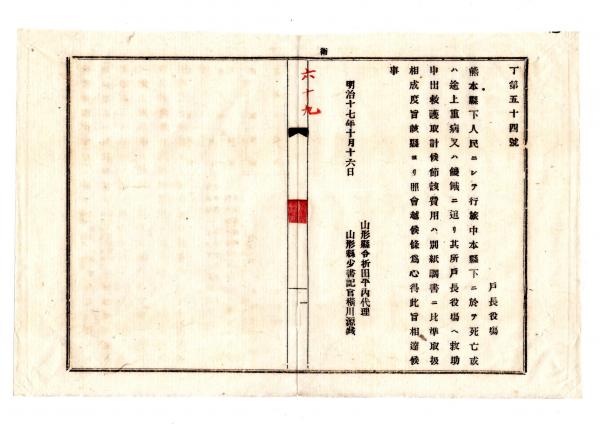 丁第五十四號
戸長役塲
熊本縣下人民ニシテ行旅中本縣下ニ於テ死亡或
ハ途上重病又ハ饑餓ニ迫リ其所戸長役塲ヘ救助
申出救護取計候節該費用ハ別紙調書ニ比準取扱
相成度旨該縣ヨリ照會越候條爲心得此旨相達候
事
山形縣令折田平内代理
山形縣少書記官横川源藏
明治十七年十月十六日
六十九
衛